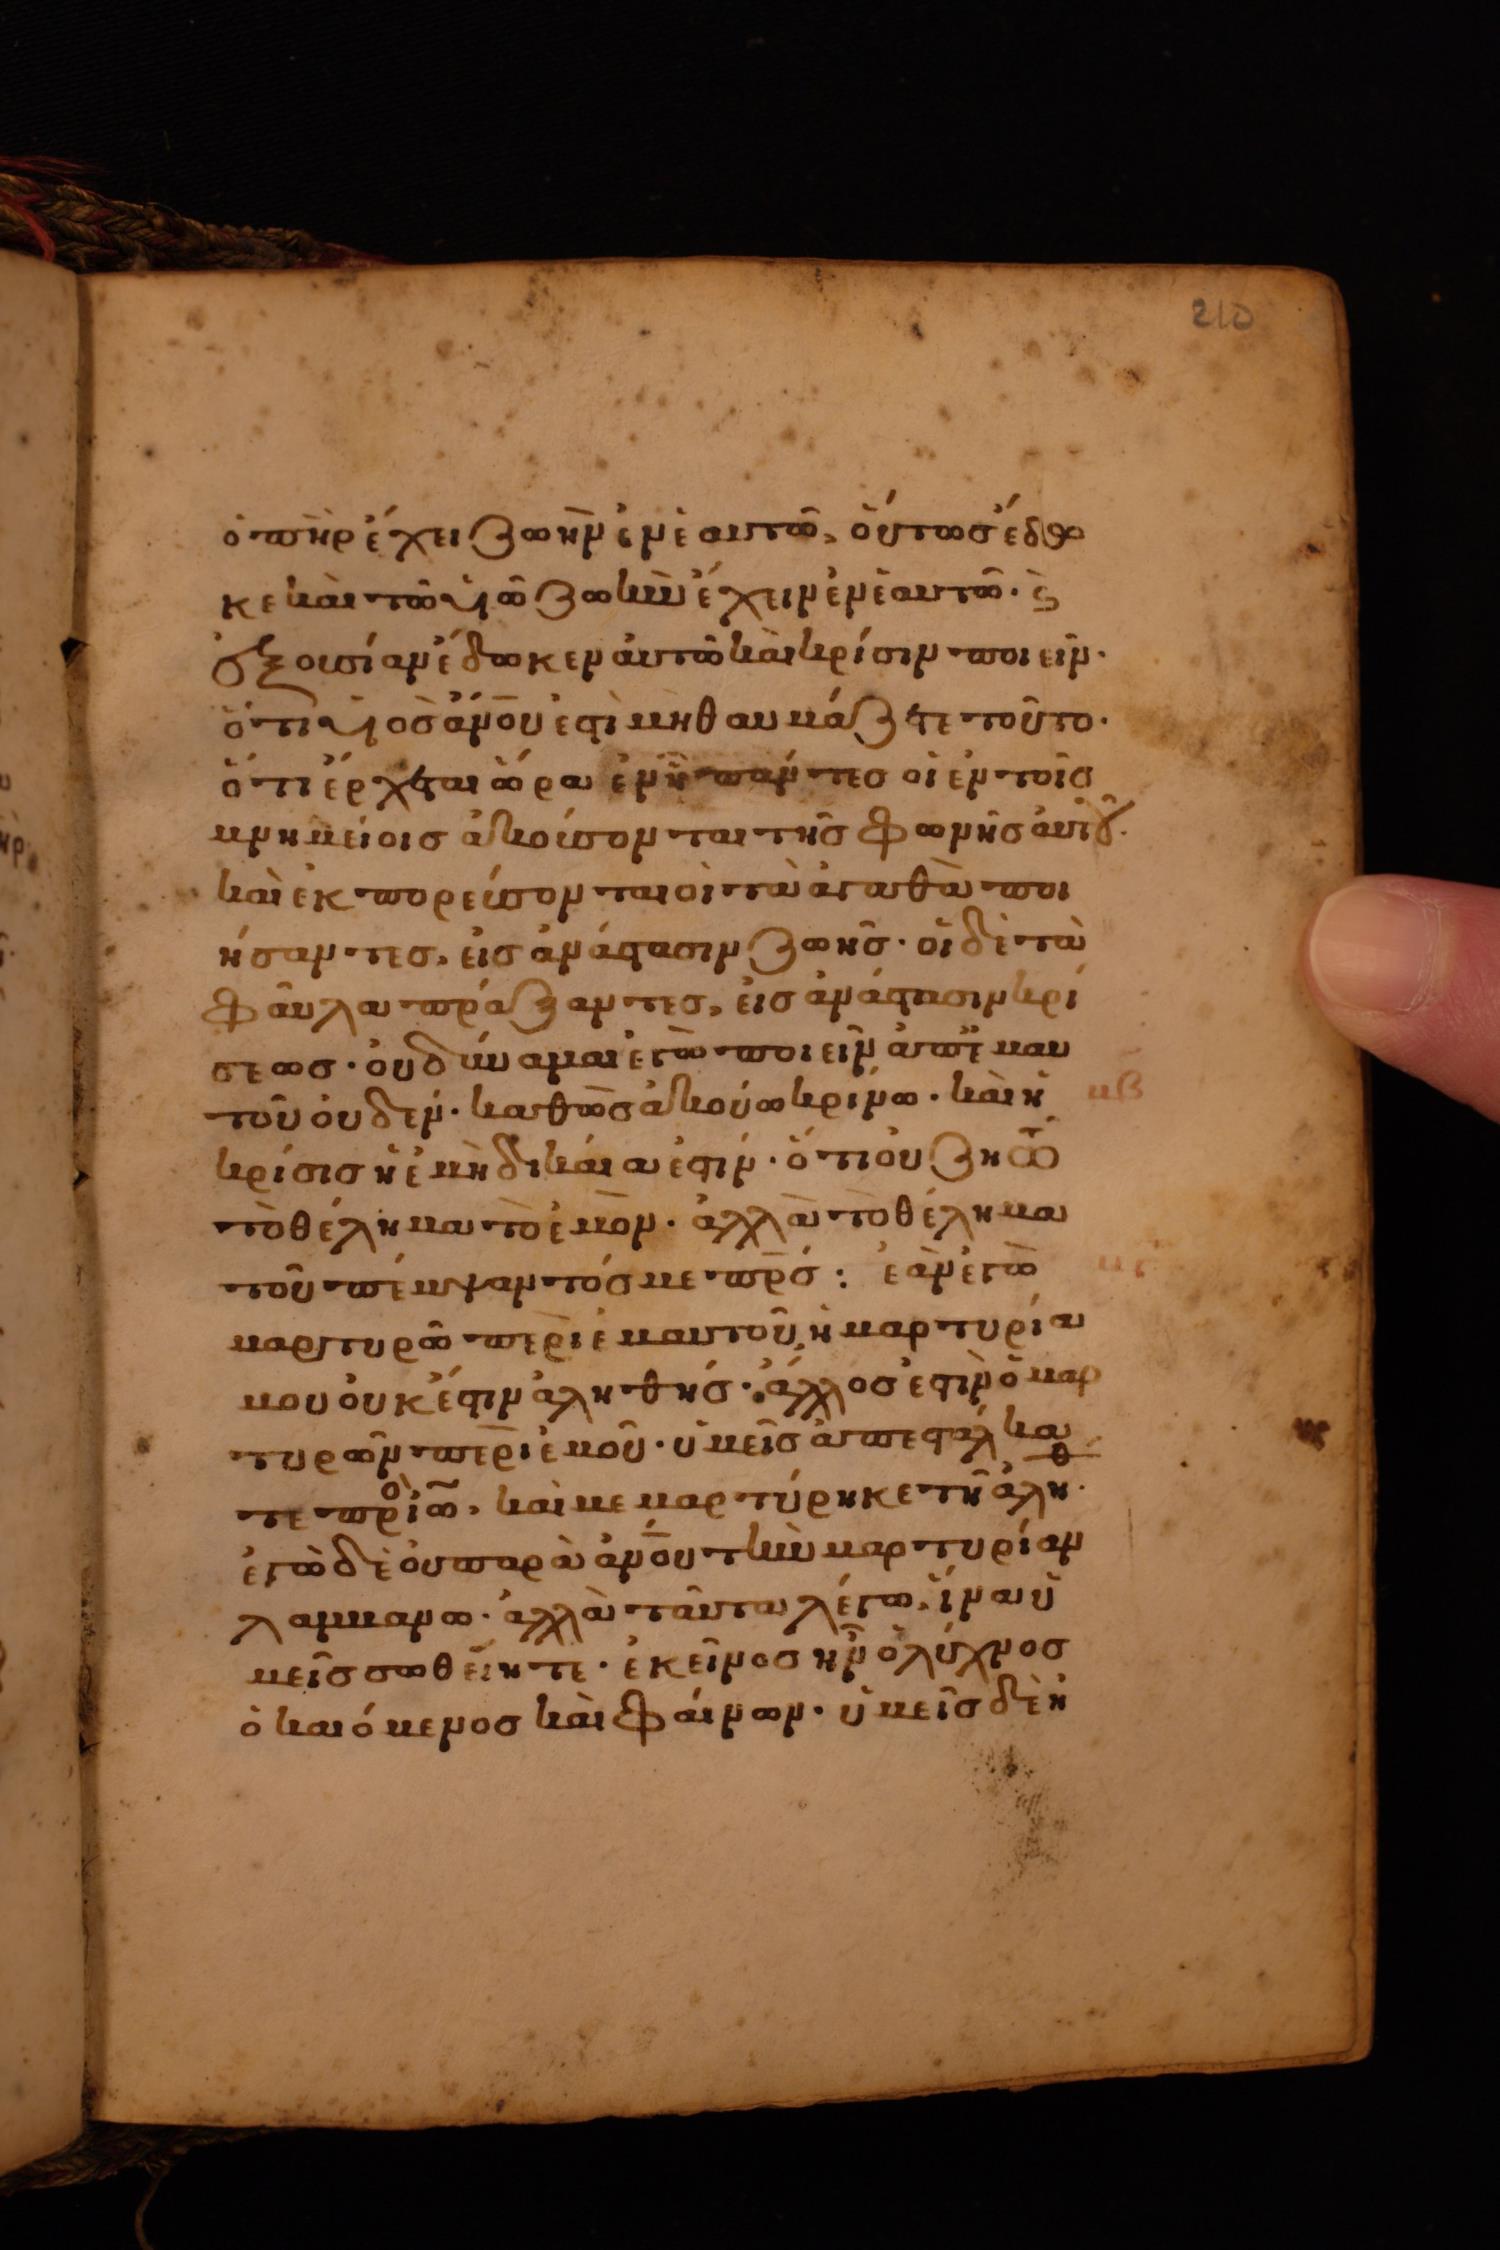 210
ὁ πὴρ ἔχει ζωὴν ἐν ἑαυτῶ, οὕτωσ ἔδω
κε καὶ τῶ υἱῶ ζωὴν ἔχειν ἐν ἑαυτῶ· ϗ
ἐξουσίαν ἔδωκεν αὐτῶ καὶ κρίσιν ποιεῖν·
ὅτι υἱὸσ ἀνου ἐστὶ μὴ θαυμάζετε τοῦτο·
ὅτι ἔρχεται ὥρα ἐν ἧ πάντεσ οἱ ἐν τοῖσ
μνημείοισ ἀκούσονται τῆσ φωνῆσ αὐτοῦ·
καὶ ἐκπορεύσονται οἱ τὰ ἀγαθὰ ποι
ήσαντεσ, εἰσ ἀνάστασιν ζωῆσ· οἱ δὲ τὰ
φαῦλα πράξαντεσ, εἰσ ἀνάστασιν κρί
σεωσ· οὐ δύναμαι ἐγὼ ποιεῖν ἀπ ἐμαυ
τοῦ οὐδέν· καθὼσ ἀκούω κρίνω· καὶ ἡ μβ
κρίσισ ἡ ἐμὴ δικαία ἐστίν· ὅτι οὐ ζητῶ
τὸ θέλημα τὸ ἐμὸν· ἀλλὰ τὸ θέλημα
τοῦ πέμψαντόσ με πρσ: ἐὰν ἐγὼ
μαρτυρῶ περὶ ἐμαυτοῦ ἡ μαρτυρία
μου οὐκ ἔστιν ἀληθήσ· ἄλλοσ ἐστὶν ὁ μαρ
τυρῶν περὶ ἐμοῦ· ὑμεῖσ ἀπεστάλκα
τε πρὸ ἰω, καὶ μεμαρτύρηκε τῆ ἀληθ·
ἐγὼ δὲ οὐ παρὰ ἀνου τὴν μαρτυρίαν
λαμβανω· ἀλλὰ ταῦτα λέγω, ἵνα ὑ
μεῖσ σωθεῖητε· ἐκεῖνοσ ἦν ὁ λύχνοσ
ὁ καιόμενοσ καὶ φαίνων· ὑμεῖσ δὲ ἠ